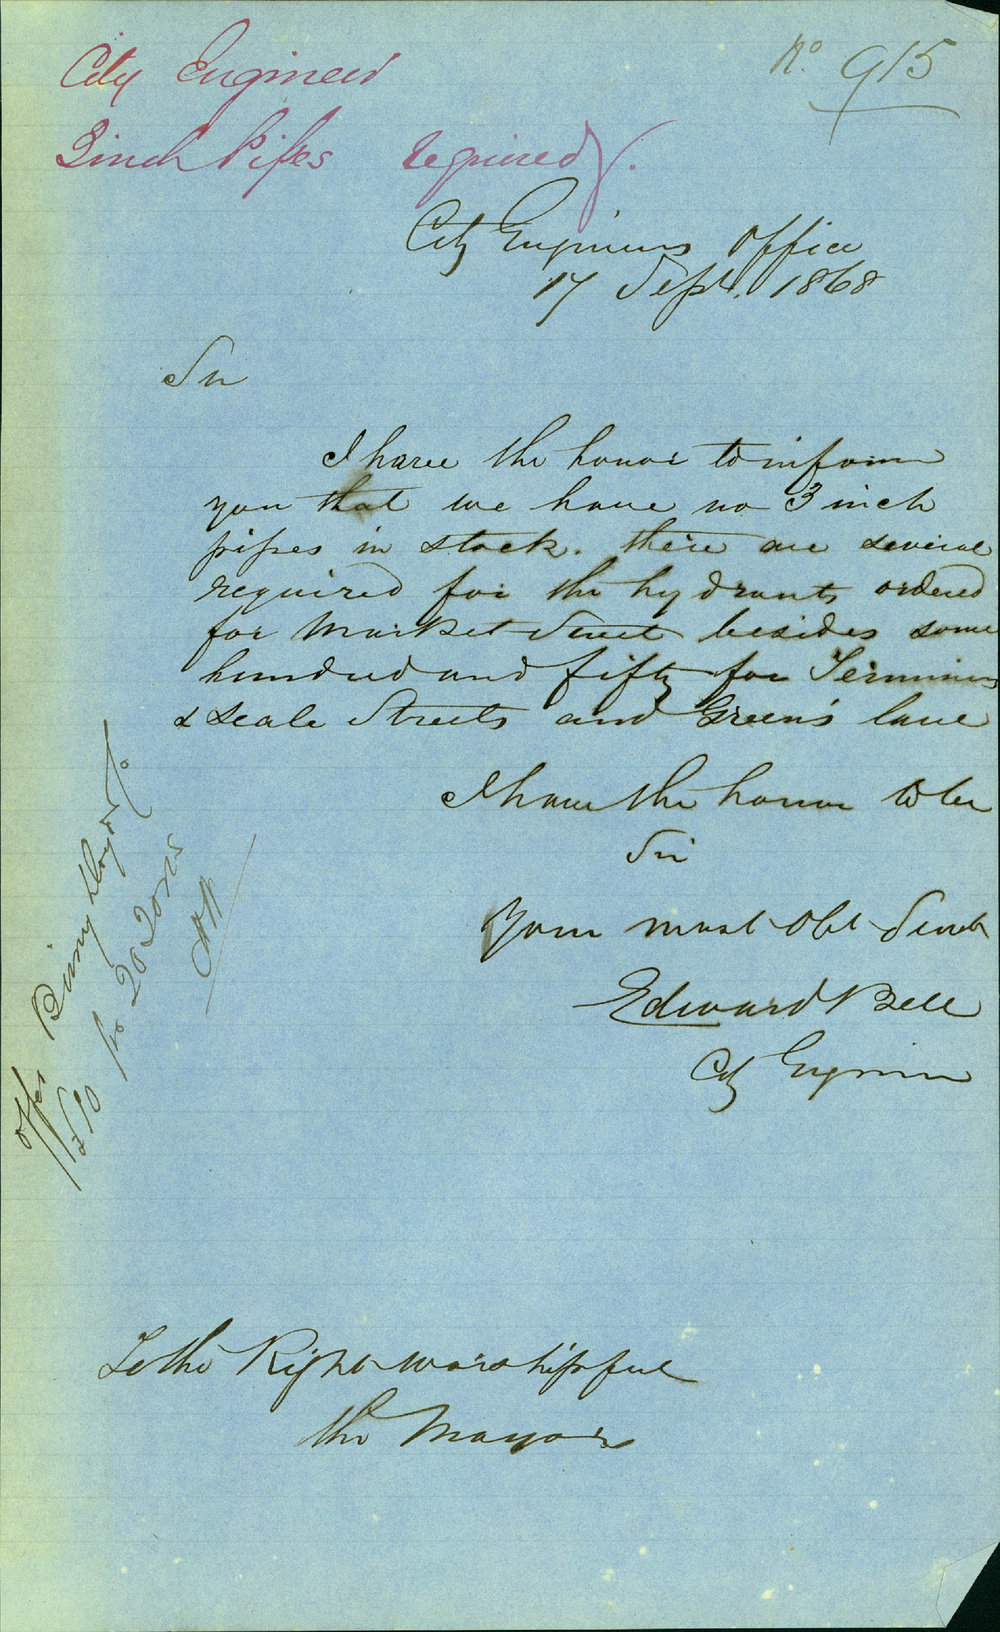 No. 915
City Engineer
3 inch Pipes required.
City Engineers Office
17 Sept. 1868
Sir
I have the honor to inform
you that we have no 3 inch
pipes in stock. there are several
required for the hydrants ordered
for Market Street besides some
hundred and fifty for Terminus
& Seale Streets and Green's lane
I have the honor to be
Sir
Your most Obt Servt
Edward Bell
City Engineer
Offer Binny Lloyd
£10 pr 20 Tons
To the Right worshipful
the Mayor